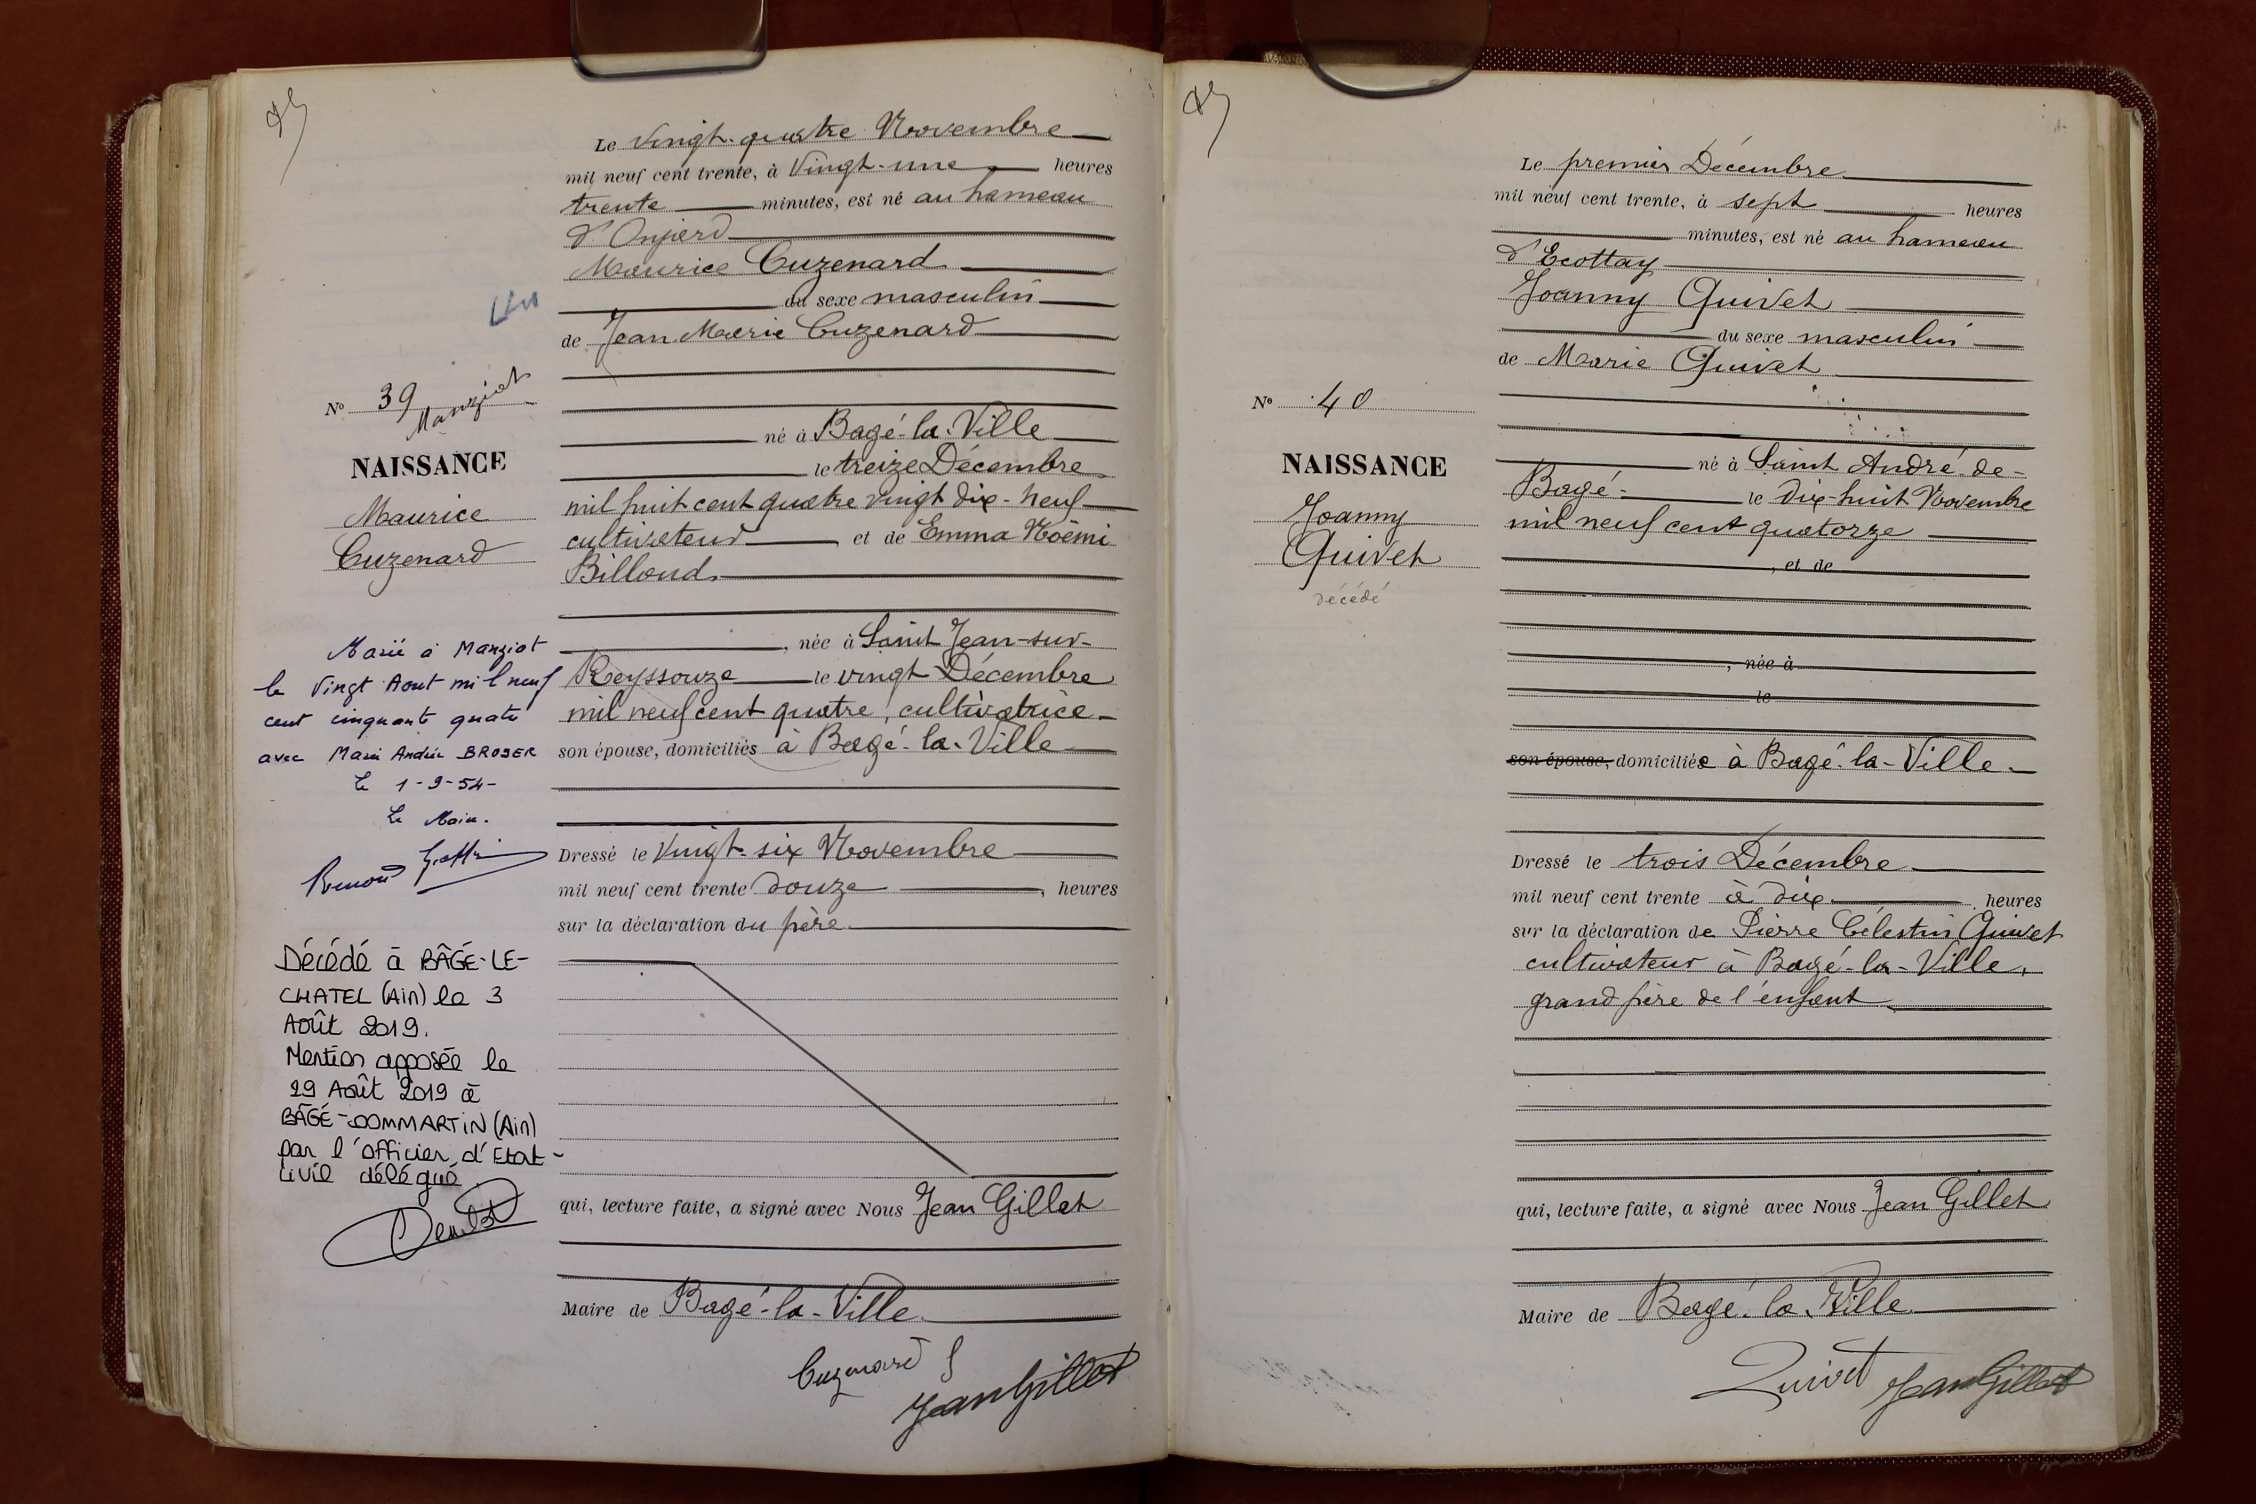 Le vingt-quatre Novembre
mil neuf cent trente, à Vingt-une heures
trente minutes, est né au hameau
d'Onjard
Maurice Cuzenard
du sexe masculin
de Jean Marie Cuzenard
né à Bagé-la-Ville
le treize Décembre
mil huit cent quatre vingt dix-neuf
cultivateur, et de Emma Noëmi
Billoud
, née à Saint Jean-sur-
Reyssouze le vingt Décembre
mil neuf cent quatre, cultivatrice
son épouse, domiciliés à Bagé-la-Ville
Dressé le Vingt-six Novembre
mil neuf cent trente douze, heures
sur la déclaration du père
qui, lecture faite, a signé avec Nous Jean Gillet
Maire de Bagé-la-Ville
Cuzenard
Jean Gillet
Nº 39
Manziat
NAISSANCE
Maurice
Cuzenard
Marié à Manziat
le Vingt Aout mil neuf
cent cinquante quatre
avec Marie Andrée BROYER
Le 1-9-54-
Le Maire.
Décédé à BÂGÉ-LE-
CHATEL (Ain) le 3
Août 2019.
Mention apposée le
29 Août 2019 à
BÂGÉ-DOMMARTIN (Ain)
par l'officier d'Etat-
civil délégué
Le premier Décembre
mil neuf cent trente, à sept heures
minutes, est né au hameau
d'Ecottay
Joanny Quivet
du sexe masculin
de Marie Quivet
né à Saint André-de-
Bagé- le dix-huit Novembre
mil neuf cent quatorze
, et de
, née à
le
son épouse, domiciliée à Bagé-la-Ville
Dressé le trois Décembre
mil neuf cent trente à dix heures
sur la déclaration de Pierre Célestin Quivet
cultivateur à Bagé-la-Ville,
grand père de l'enfant
qui, lecture faite, a signé avec Nous Jean Gillet
Maire de Bagé-la-Ville
Quivet Jean Gillet
Nº 40
NAISSANCE
Joanny
Quivet
décédé